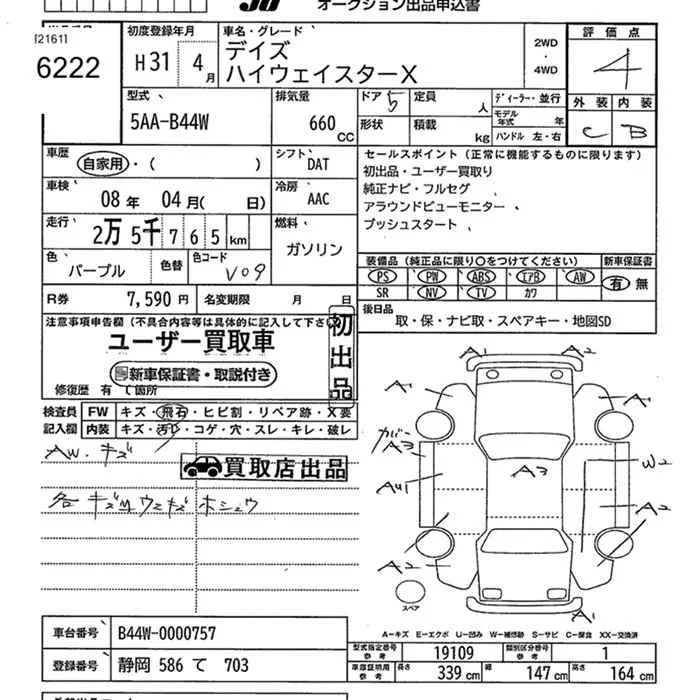 オークション出品申込書
[2161]
6222
初度登録年月
H31 4月
車名・グレード
デイズ
ハイウェイスターX
2WD
・
4WD
評価点
4
外装 内装
C B
型式
5AA-B44W
排気量
660 CC
ドア 5
定員 人
形状
積載 kg
ディーラー・並行
モデル年式 年
ハンドル 左・右
車歴
自家用・( )
シフト
DAT
車検
08年 04月( 日)
冷房
AAC
走行
2万5千765km
燃料
ガソリン
色
パープル
色替
色コード
V09
R券
7,590円
名変期限 月 日
セールスポイント(正常に機能するものに限ります)
初出品・ユーザー買取り
純正ナビ・フルセグ
アラウンドビューモニター
プッシュスタート
装備品(純正品に限り○をつけてください)
新車保証書
PS PW ABS エアB AW
有 無
SR NV TV カワ
後日品
取・保・ナビ取・スペアキー・地図SD
注意事項申告欄(不具合内容等は具体的に記入して下さい
初出品
ユーザー買取車
新車保証書・取説付き
修復歴 有 て箇所
検査員
記入欄
FW キズ・飛石・ヒビ割・リペア跡・X要
内装 キズ・汚レ・コゲ・穴・スレ・キレ・破レ
AW.キズ
買取店出品
各キズ ウエキズ ホシュウ
A1 A2
A1 A1
カバー
A3
A3
W2
AU1
A2
A2
A2
スペア
A1
A-キズ E-エクボ U-凹み W-補修跡 S-サビ C-腐食 XX-交換済
車台番号
B44W-0000757
登録番号
静岡 586 て 703
型式指定番号 参考
19109
類別区分番号 参考
1
車庫証明用 参考
長さ 339 cm
幅 147 cm
高さ 164 cm